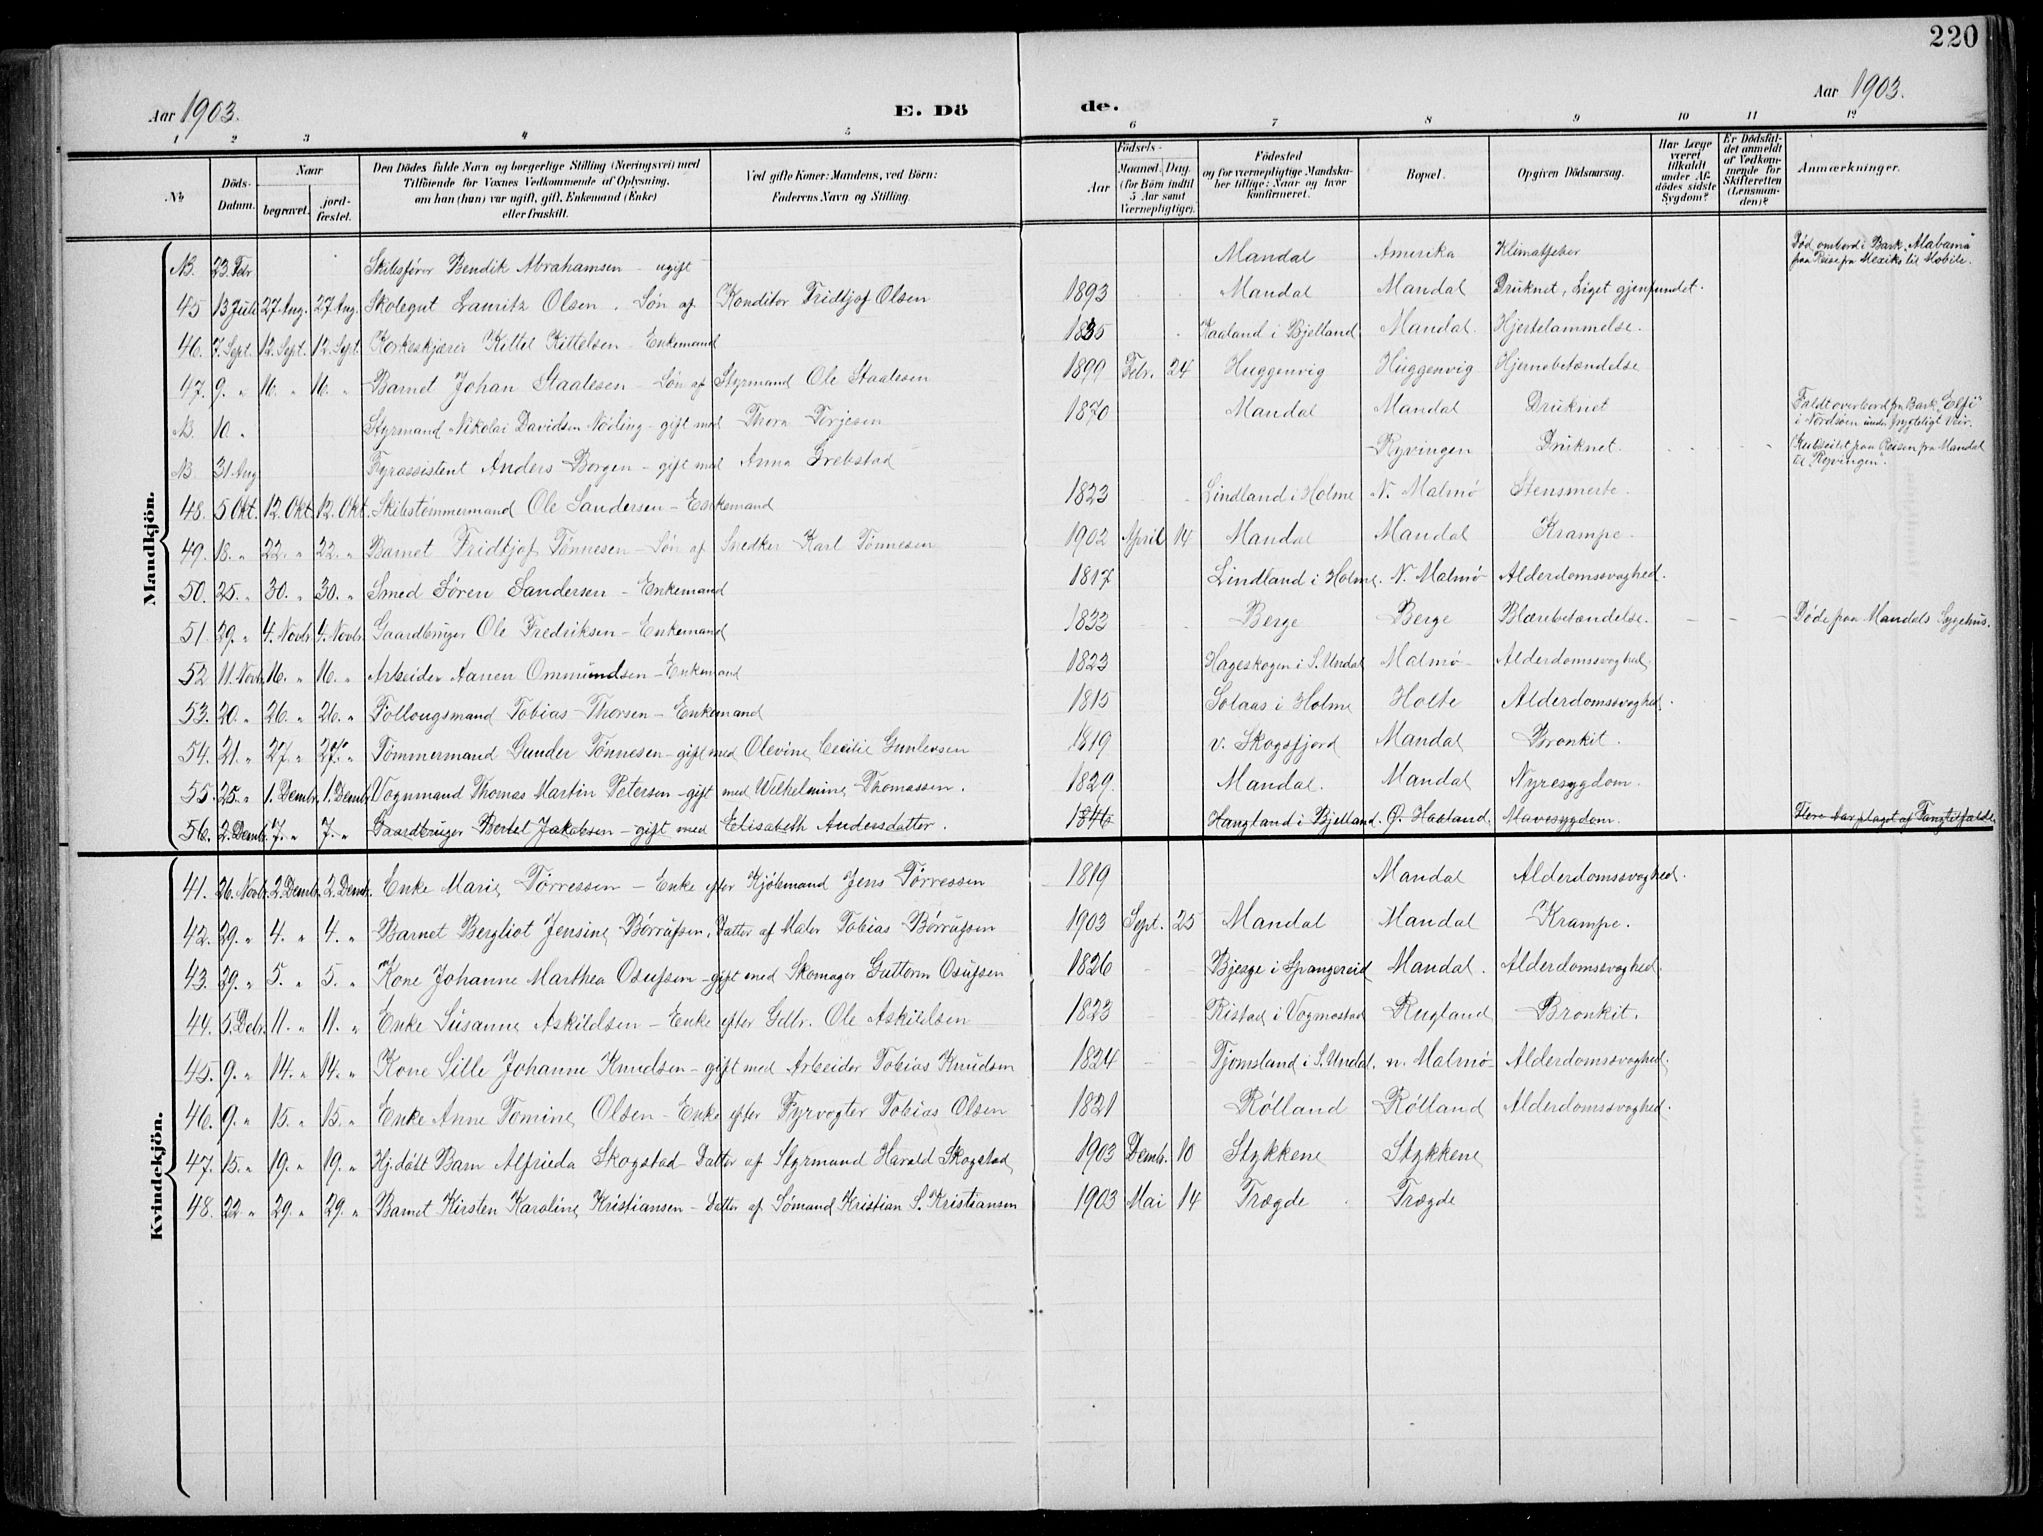 220
Aar 1903. E. Dö de. Aar 1903.
1 2 3 4 5 6 7 8 9 10 11 12
No
Döds-Datum.
Naar
begravet.
jord-fæstet.
Den Dödes fulde Navn og borgerlige Stilling (Næringsvei) med
Tilföiende for Voxnes Vedkommende af Oplysning.
om han (hun) var ugift, gift, Enkemand (Enke)
eller fraskilt.
Ved gifte Koner: Mandens, ved Börn:
Faderens Navn og Stilling.
Födsels-
Aar
Maaned. Dag.
(for Börn indtil
5 Aar samt
Værnepligtige).
Födested
og for værnepligtige Mandska-
ber tillige: Naar og hvor
konfirmeret.
Bopæl.
Opgiven Dödsaarsag.
Har Læge
været
tilkaldt
under Af-
dödes sidste
Sygdom?
Er Dödsfal-
det anmeldt
af Vedkom-
mende for
Skifteretten
(Lensman-
den)?
Anmærkninger.
Mandkjön.
N.B. 23. Febr Skibsfører Bendik Abrahamsen – ugift Mandal Amerika Klimatfeber Død ombord i Bark „Alabama" paa Reise fra Mexiko til Mobile.
45 13 Juli 27 Aug. 27 Aug. Skolegut Lauritz Olsen. Søn af Konditor Fridtjof Olsen 1893 Mandal Mandal Druknet, Liget gjenfundet.
46. 7. Sept. 12. Sept. 12. Sept. Korkeskjærer Kittel Kittelsen – Enkemand 1835 Kaaland i Bjelland Mandal. Hjertelammelse.
47. 9. „ 16. „ 16. „ Barnet Johan Staalesen – Søn af Styrmand Ole Staalesen 1899 Febr. 24 Huggenvig Huggenvig Hjernebetændelse
N.B. 10. „ Styrmand Nikolai Davidsen Nøding – gift med Thora Torjesen 1870 Mandal Mandal Druknet Faldt overbord fra Bark „Elfi" i Nordsøen under frygteligt Veir.
N.B. 31. Aug Fyrassistent Anders Borgen – gift med Anna Grebstad Ryvingen Druknet. Kulseilet paa Reisen fra Mandal til „Ryvingen".
48. 5 Okt. 12. Okt. 12. Okt. Skibstømmermand Ole Sandersen – Enkemand 1823 Lindland i Holme N. Malmø Stensmerte.
49. 18. „ 22. „ 22. „ Barnet Fridtjof Tønnesen – Søn af Snedker Karl Tønnesen 1902 April 14 Mandal Mandal Krampe.
50. 25. „ 30. „ 30. „ Smed Søren Sandersen – Enkemand 1817 Lindland i Holme. N. Malmø Alderdomssvaghed.
51. 29. „ 4. Novbr. 4. Novbr. Gaardbruger Ole Fredriksen – Enkemand 1833 Berge Berge Blærebetændelse. Døde paa Mandals Sygehus.
52 11. Novbr. 16. „ 16. „ Arbeider Aanen Ommundsen – Enkemand 1823 Hageskogen i S. Undal Malmø Alderdomssvaghed.
53. 20. „ 26. „ 26. „ Follougsmand Tobias Thorsen – Enkemand 1815 Solaas i Holme Holte Alderdomssvaghed.
54. 21. „ 27. „ 27. „ Tømmermand Gunder Tønnesen – gift med Olevine Cecilie Gunlevsen 1819 v. Skogsfjord Mandal Bronkit.
55. 25. „ 1. Dembr. 1. Dembr. Vognmand Thomas Martin Petersen – gift med Wilhelmine Thomassen. 1829. Mandal. Mandal Nyresygdom.
56. 2. Dembr. 7. „ 7. „ Gaardbruger Bertel Jakobsen – gift med Elisabeth Andersdatter. 1846 Haugland i Bjelland. Ø. Haaland. Mavesygdom.
Kvindekjön.
41. 26. Novbr. 2. Dembr. 2. Dembr. Enke Marie Tørressen – Enke efter Kjøbmand Jens Tørressen 1819 Mandal Alderdomssvaghed.
42. 29. „ 4. „ 4. „ Barnet Bergliot Jensine Børrufsen. Datter af Maler Tobias Børrufsen 1903 Sept. 25 Mandal Mandal Krampe.
43. 29. „ 5. „ 5. „ Kone Johanne Marthea Osufsen – gift med Skomager Guttorm Osufsen 1826 Bjerge i Spangereid Mandal. Alderdomssvaghed.
44. 5. Debr. 11. „ 11. „ Enke Susanne Askildsen – Enke efter Gdbr. Ole Askildsen 1823 Ristad i Vogmostad Rugland Bronkit.
45. 9. „ 14. „ 14. „ Kone Sille Johanne Knudsen – gift med Arbeider Tobias Knudsen 1824 Tjomsland i S. Undal. n. Malmø Alderdomssvaghed.
46. 9. „ 15. „ 15. „ Enke Anne Tomine Olsen – Enke efter Fyrvogter Tobias Olsen 1821 Rølland Rølland Alderdomssvaghed.
47. 15. „ 19. „ 19. „ Hj. døbt Barn Alfrieda Skogstad – Datter af Styrmand Harald Skogstad 1903 Dembr. 10 Stykkene Stykkene
48. 22. „ 29. „ 29. „ Barnet Kirsten Karoline Kristiansen – Datter af Sømand Kristian S. Kristiansen 1903 Mai 14 Trægde Trægde